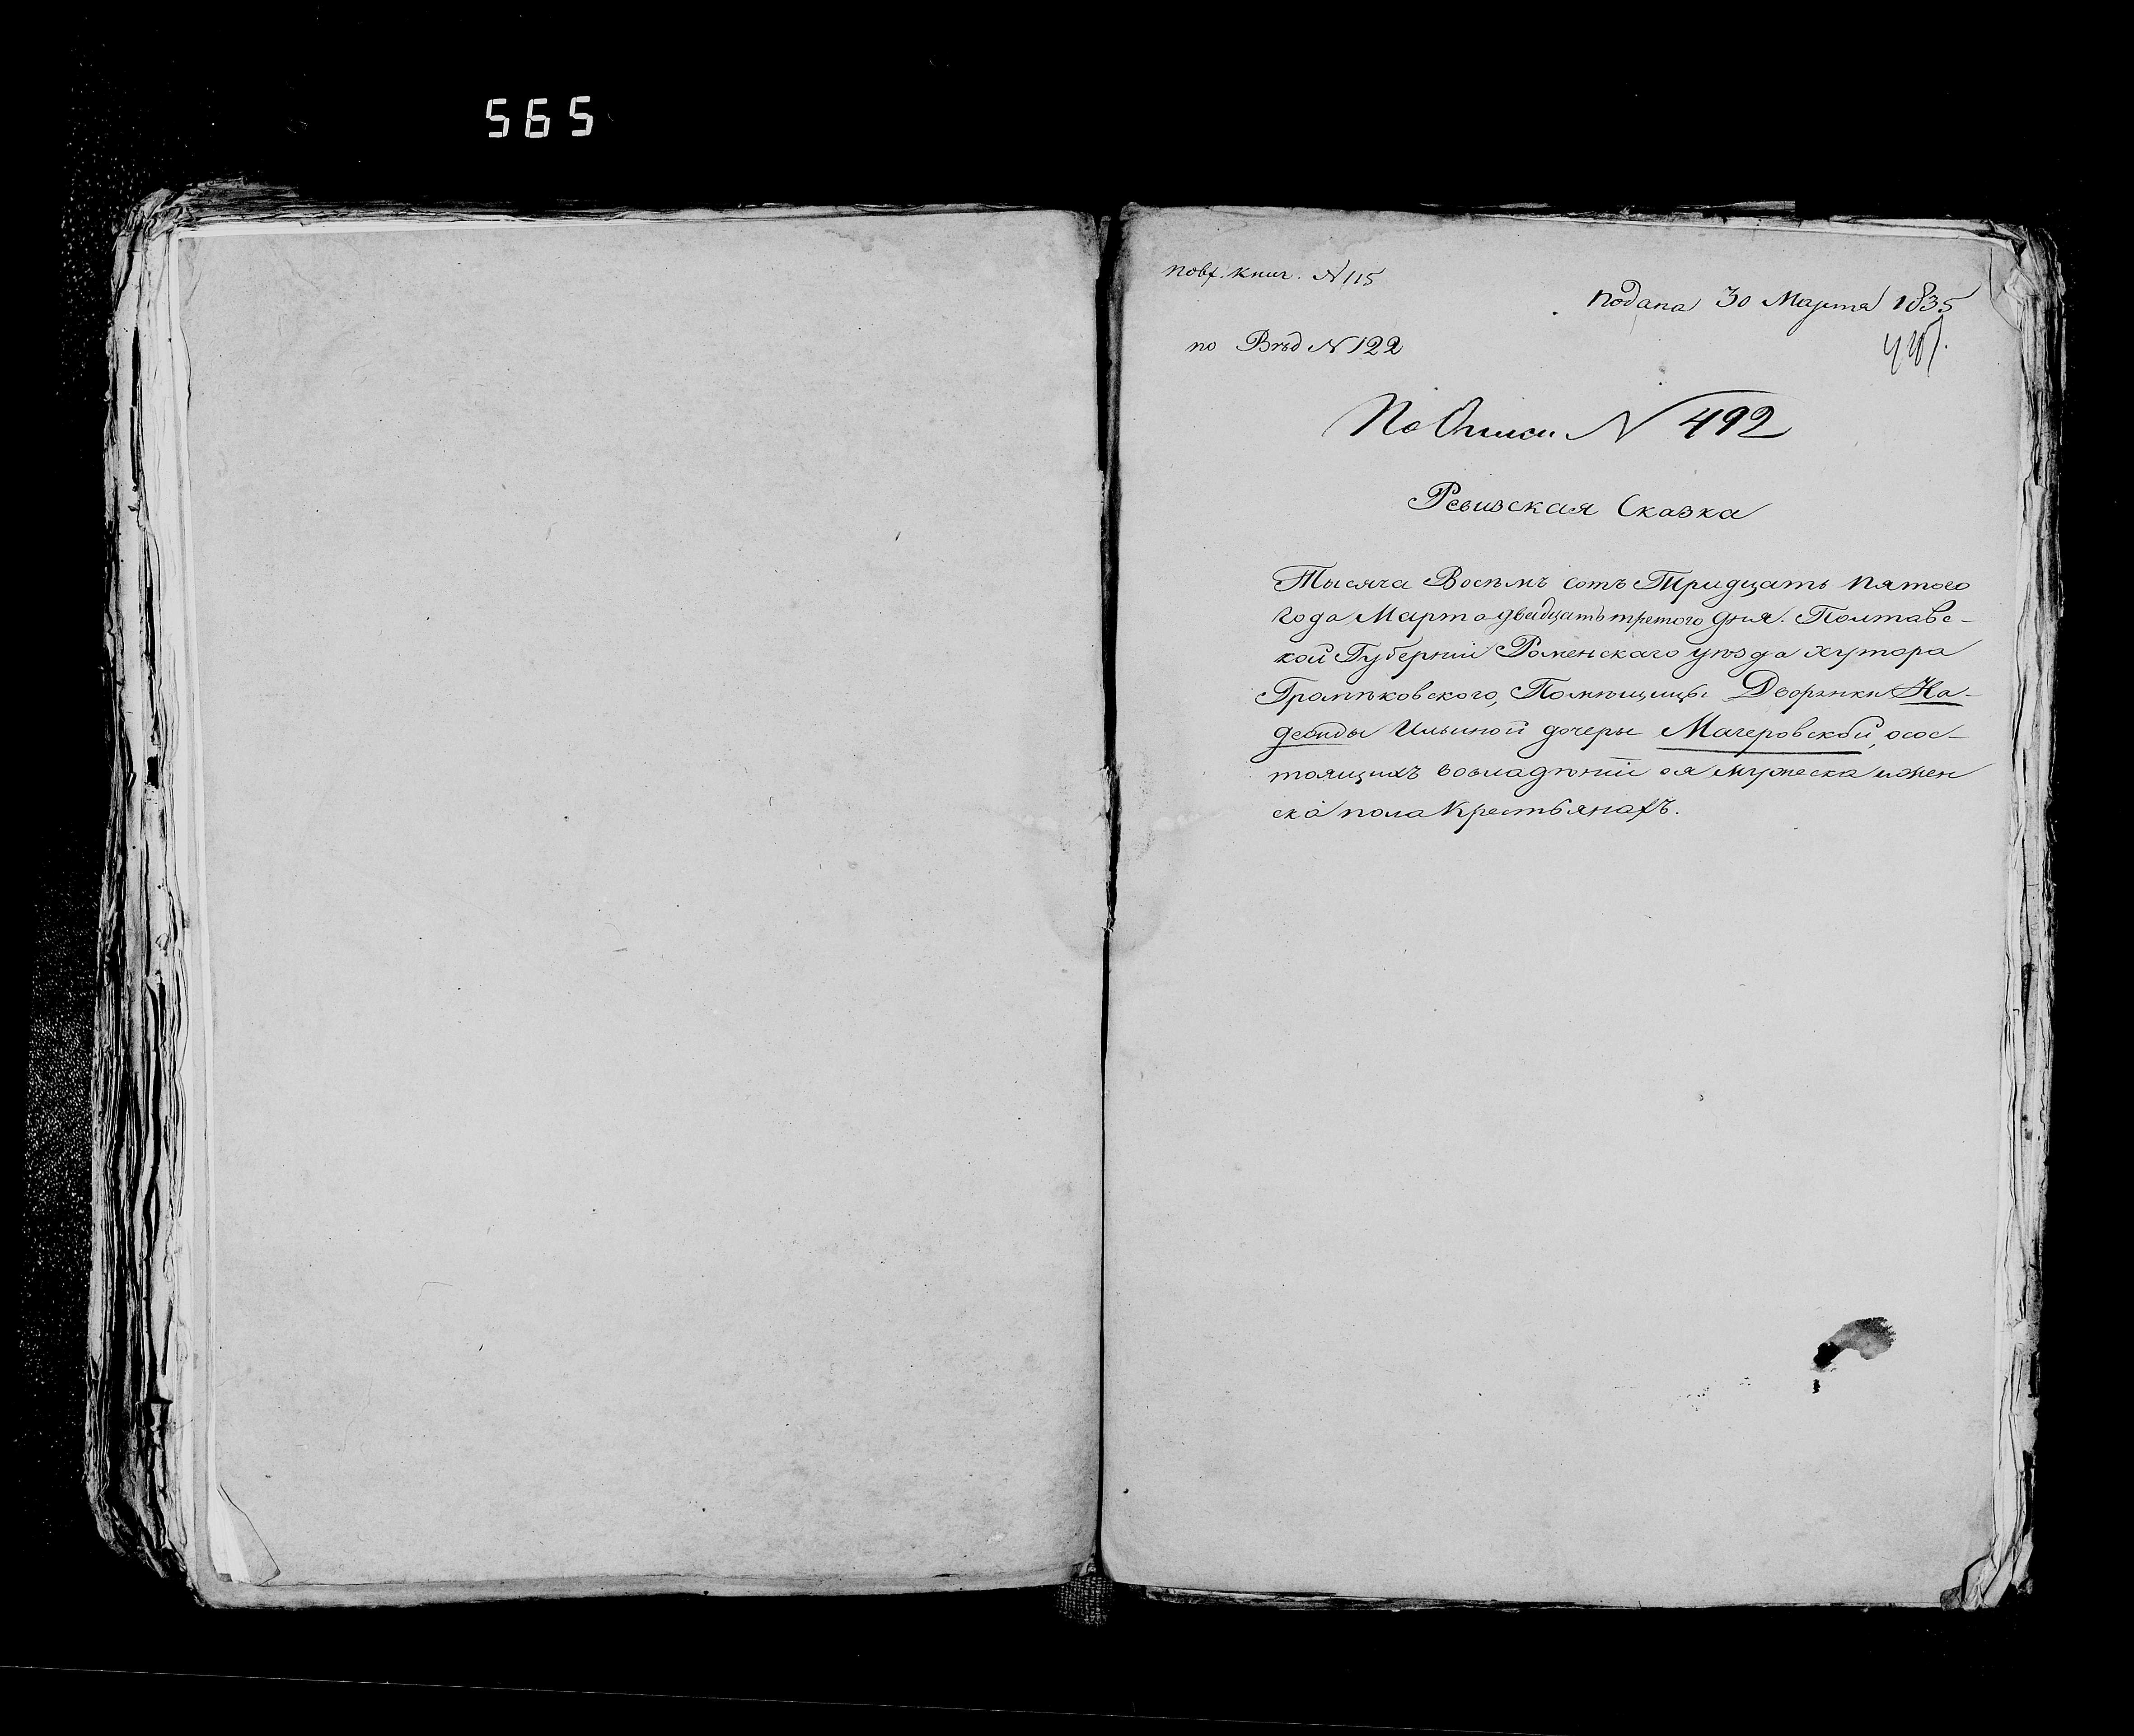 565
книг. N 115
подана 30 Марта 1835
по Вѣд N 122
По Описи N 492
Ревизская Сказка
Тысяча Восѣмъ сотъ Тридцать пятого
Года Марта двадцать третого дня. Полтавс-
кой Губерніи Роменскаго уѣзда хутора
Помѣщицы Дворянки На-
дежды Ильиной дочеры Магеровской, осос-
тоящихъ вовладѣніи ея мужеска ижен
ска пола Крестьянахъ.